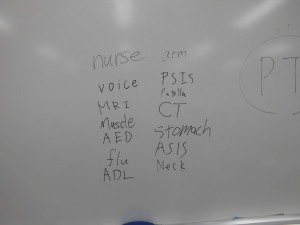 nurse
voice
MRI
Muscle
AED
flu
ADL
arm
PSIS
Patella
CT
Stomach
ASIS
Neck
PT